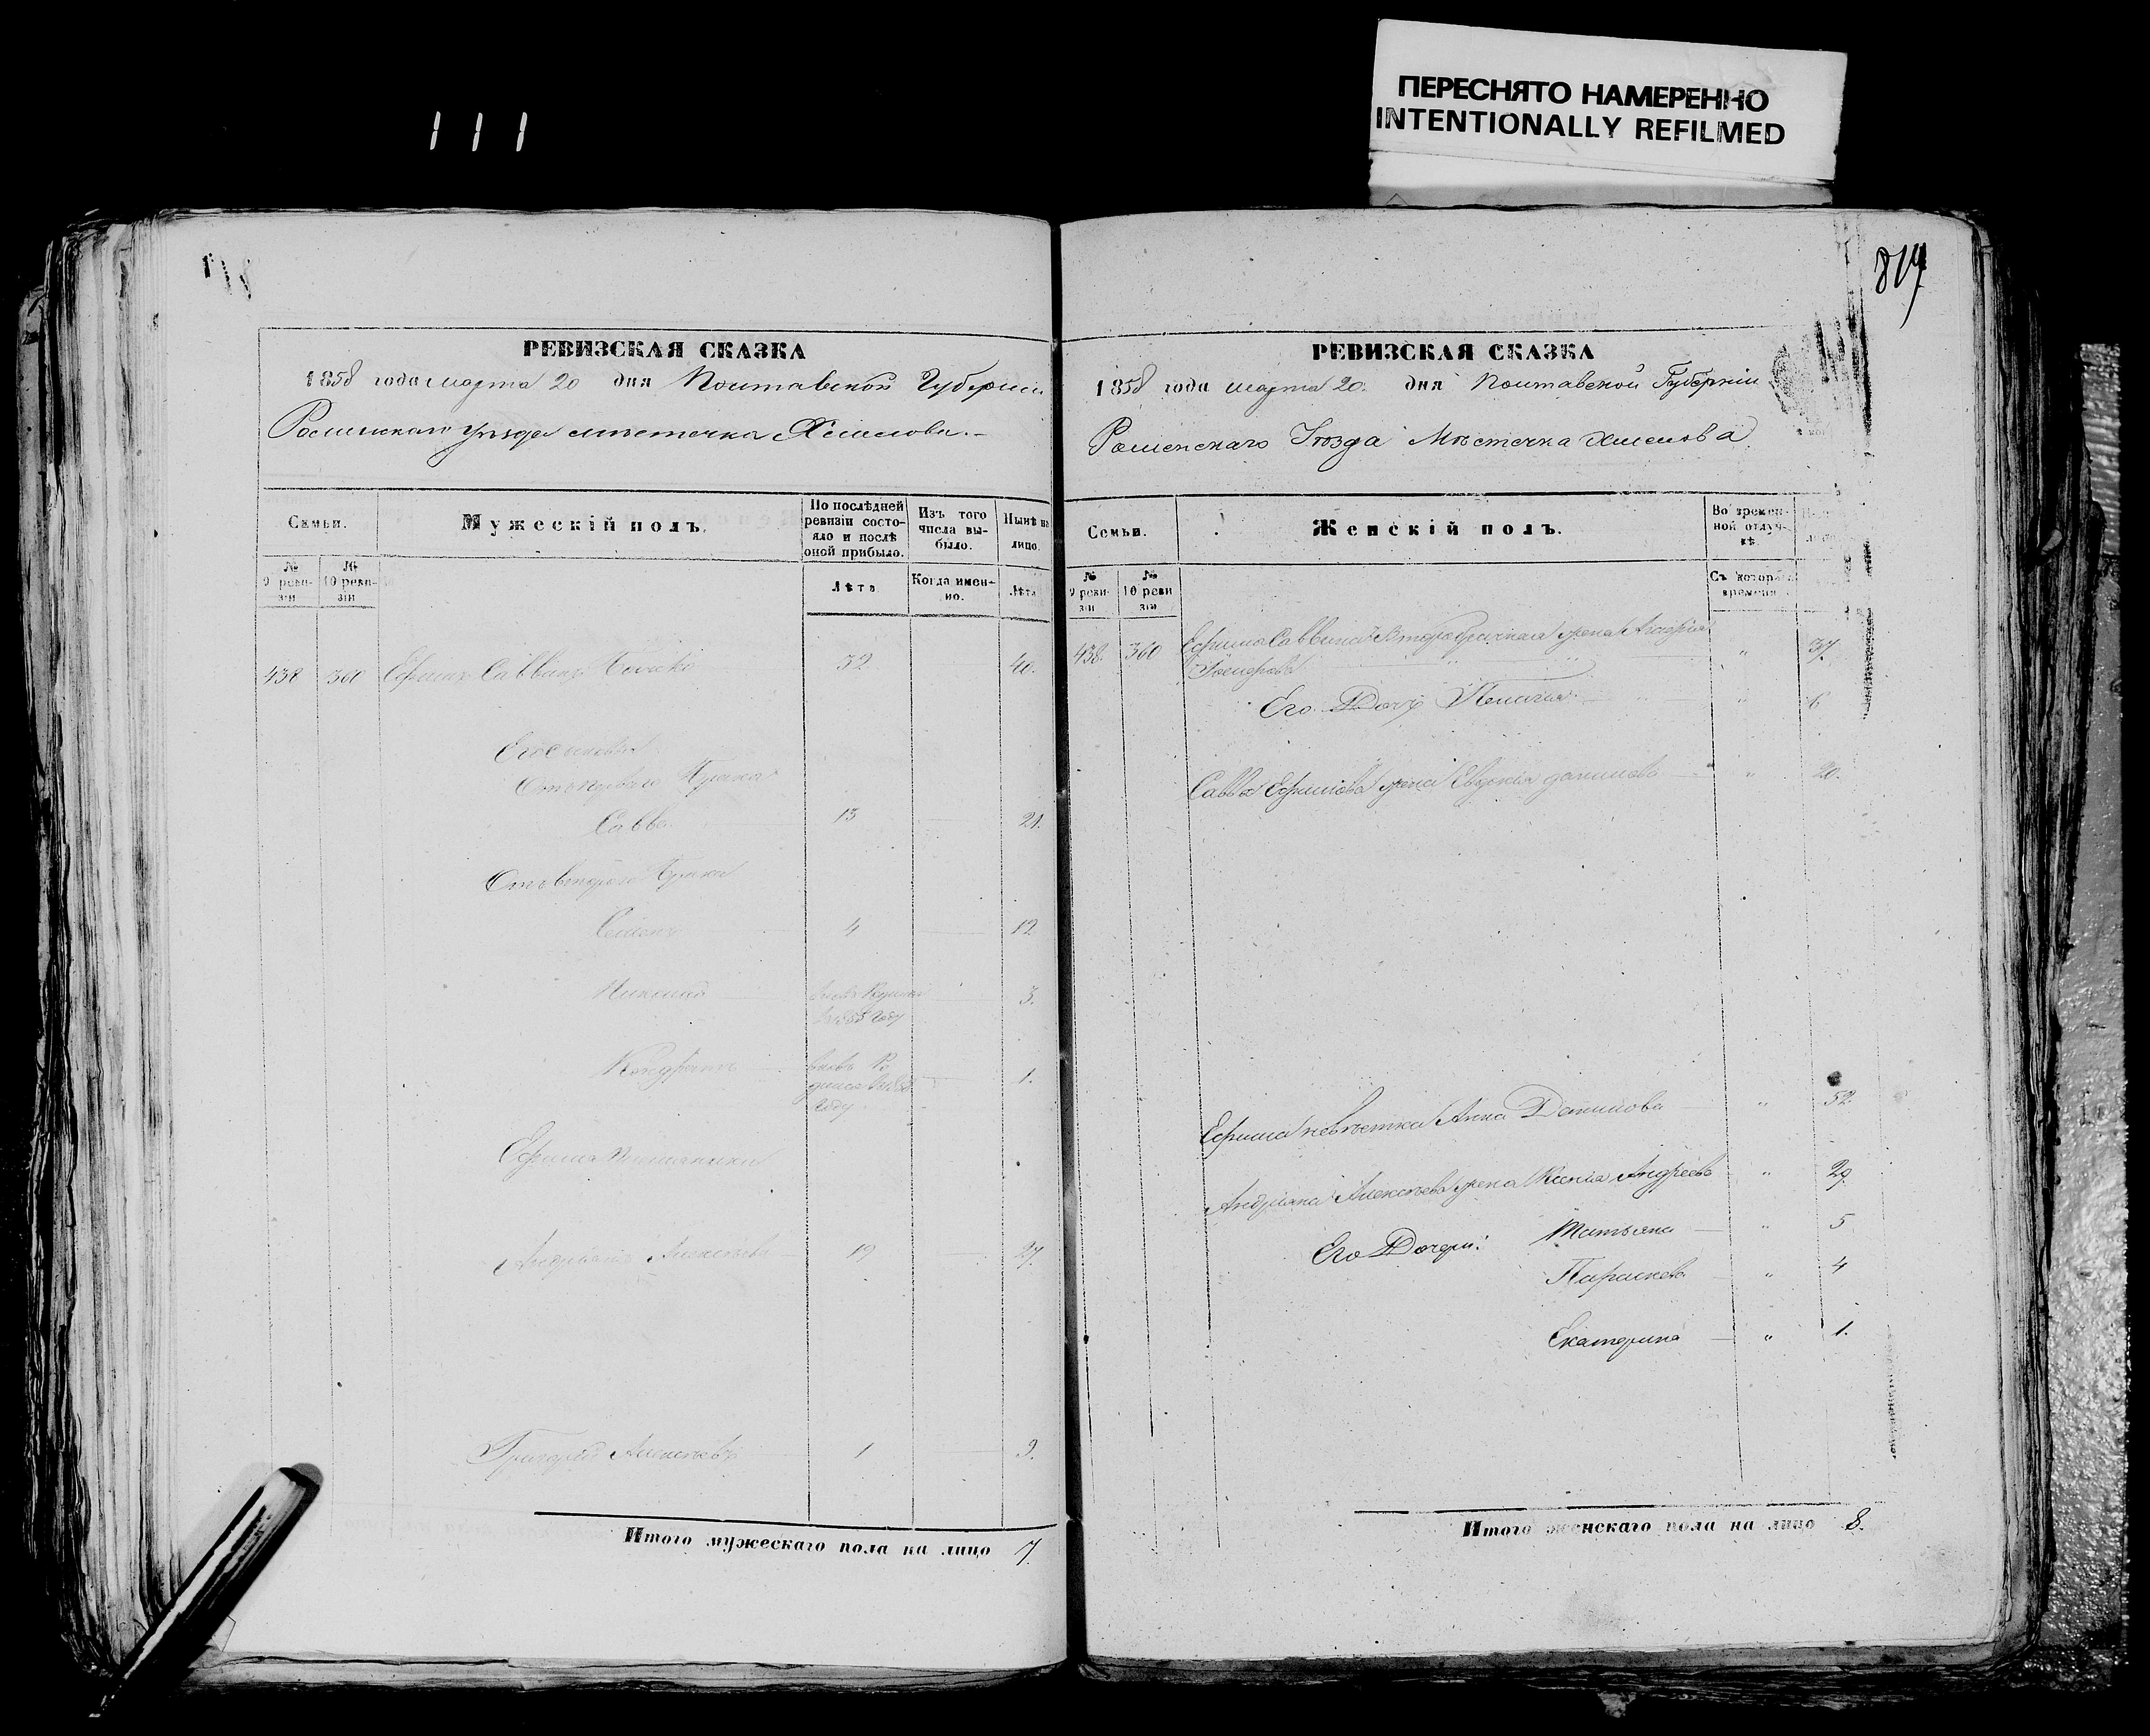 ПЕРЕСНЯТО НАМЕРЕННО
INTENTIONALLY REFILMED
111
819
РЕВИЗСКАЯ СКАЗКА
1858 года марта 20 дня Полтавской Губернiи
Роменскаго уѣзда мѣстечка Хмелова.
Семьи.
Мужескiй полъ.
По послѣдней ревизiи состояло и послѣ оной прибыло.
Изъ того числа выбыло.
Нынѣ на лицо.
№ 9 ревизiи
№ 10 ревизiи
Лѣта
Когда именно.
Лѣта
438 360 Ефимъ Саввинъ 32 40.
Его сыновья
Отъ перваго брака
Савва 13 21.
Отъ втораго брака
Семенъ 4 12
Николай 3.
1.
Ефима племянники
Андрiанъ Алексѣевъ 19 27.
Григорiй Алексѣевъ 1 9.
Итого мужескаго пола на лицо 7.
РЕВИЗСКАЯ СКАЗКА
1858 года марта 20. дня Полтавской Губернiи
Роменскаго Уѣзда Мѣстечка Хмелова
Семьи.
Женскiй полъ.
Во временной отлучкѣ
№ 9 ревизiи
№ 10 ревизiи
Съ котораго времени
438. 360 Ефима Саввина второбрачная жена " 37.
Его Дочь Пелагея " 6
Савва Ефимова жена Евдокiя Данилова " 20.
Ефима невѣстка Анна Данилова " 52.
Андрiана Алексѣева жена Ксенiя Андреева " 29.
Его Дочери: Татьяна " 5
Параскева " 4
Екатерина " 1.
Итого женскаго пола на лицо 8.